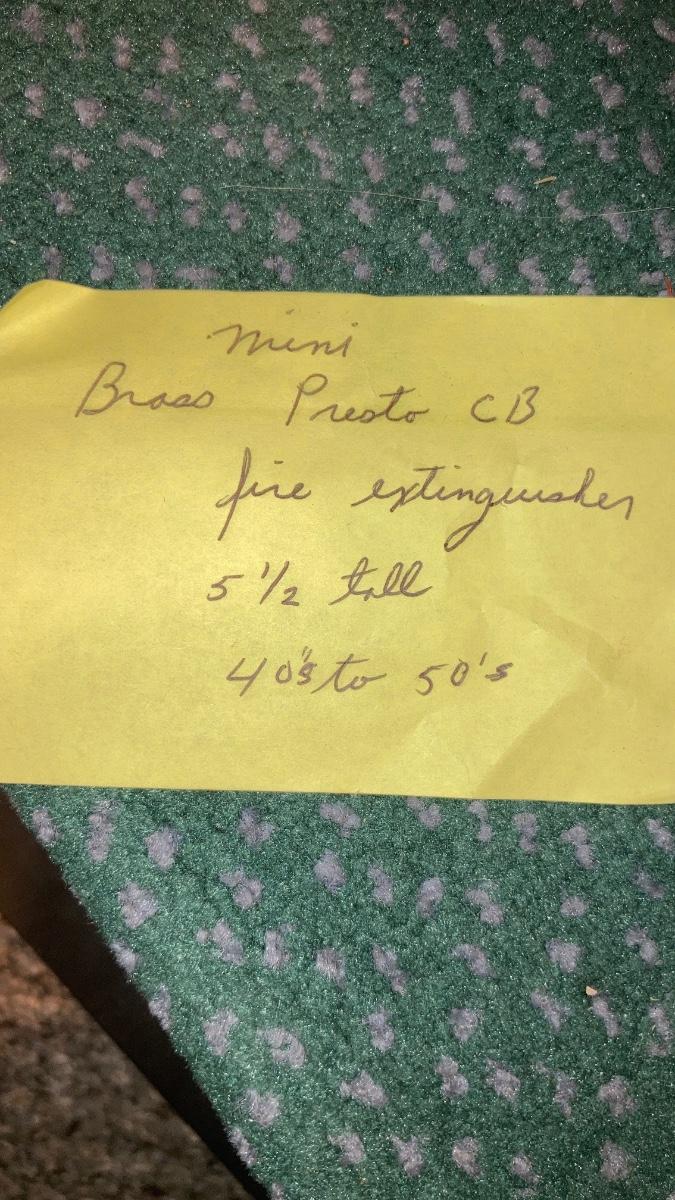 mini
Brass Presto CB
fire extinguisher
5 1/2 tall
40's to 50's